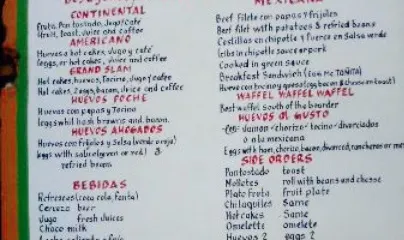 CONTINENTAL
fruta, Pan tostado, Jugo y Café
fruit, toast, Juice and coffee
AMERICANO
Huevos o hot cakes, Jugo y café
eggs, or hot cakes, Juice and coffee
GRAND SLAM
Hot cakes, huevos, Tocino, Jugo y café
Hot cakes, 2 eggs, bacon, Juice and coffee
HUEVOS POCHE
Huevos con papas y Tocino
Eggs w/ hash browns and bacon.
HUEVOS AHOGADOS
Huevos con frijoles y Salsa (verde o roja)
eggs with salsa (green or red) &
refried beans
BEBIDAS
Refrescos (coca cola, fanta)
Cerveza beer
Jugo fresh juices
Choco milk
MEXICANA
Beef Filete con papas y frijoles
Beef filet with potatoes & refried beans
Costillas en chipotle y puerco en Salsa verde
Cooked in green sauce
Breakfast Sandwich (con MC TOÑITA)
WAFFEL WAFFEL WAFFEL
Best waffel South of the boarder
HUEVOS al GUSTO
Jamon-chorizo-tocino-divorciados
o a la mexicana
Eggs with ham, chorizo, bacon, divorced, rancheros or mex
SIDE ORDERS
Pantostado toast
Molletes roll with beans and cheese
Plato fruta fruit plate
Chilaquiles Same
Hot cakes Same
Omelette omelete
Huevos 2 eggs 2